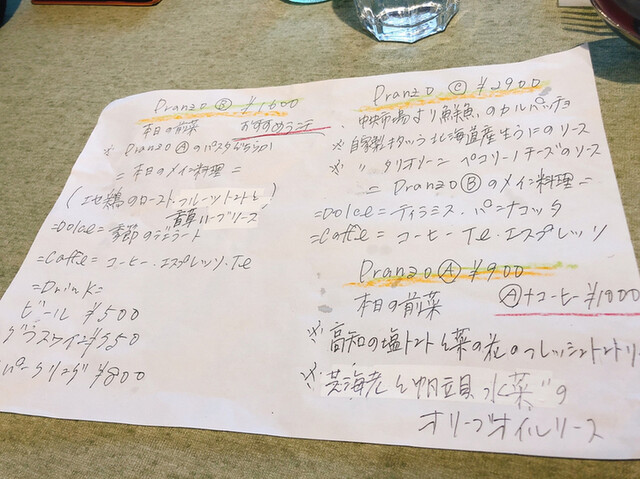 Pranzo Ⓑ ¥1600
本日の前菜 おすすめランチ
※ Pranzo Ⓐのパスタどちらか
= 本日のメイン料理 =
(地鶏のロースト・フルーツトマトと
香草ハーブリース)
=Dolce= 季節のジェラート
=Caffe= コーヒー・エスプレッソ・Te
=Drink=
ビール ¥500
グラスワイン ¥550
パークリング ¥800
Pranzo Ⓒ ¥2900
・中央市場より鮮魚のカルパッチョ
※ 自家製キタッラ北海道産生うにのソース
※ 〃 タリオリーニ ペコリーノチーズのソース
= Pranzo Ⓑのメイン料理 =
=Dolce= ティラミス・パンナコッタ
=Caffe= コーヒー Te・エスプレッソ
Pranzo Ⓐ ¥900
本日の前菜 Ⓐ+コーヒー ¥1000
※ 高知の塩トマトと菜の花のフレッシュトマトソー
※ 芝海老と帆立貝 水菜の
オリーブオイルソース